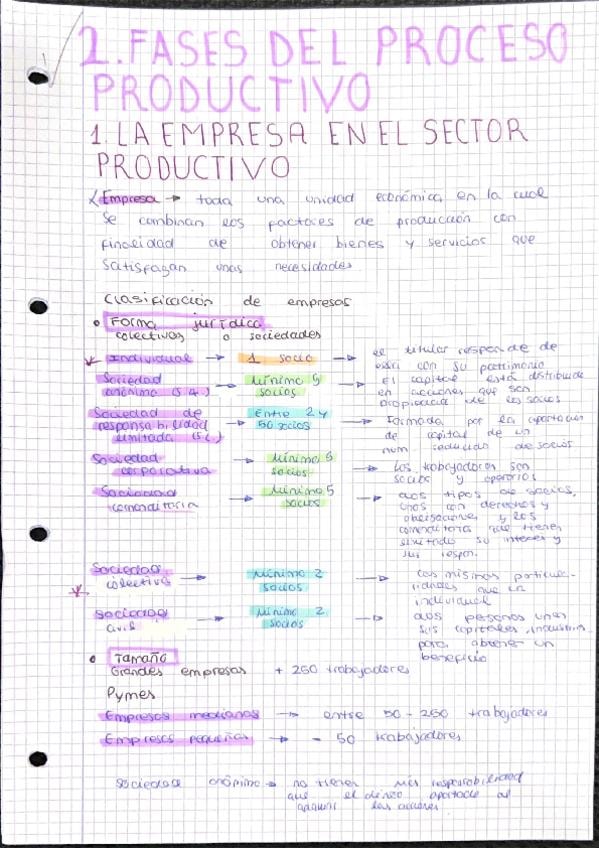 2. FASES DEL PROCESO
PRODUCTIVO
1. LA EMPRESA EN EL SECTOR
PRODUCTIVO
Empresa → toda una unidad económica en la cual
se combinan los factores de producción con
finalidad de obtener bienes y servicios que
satisfagan unas necesidades
Clasificación de empresas
• Forma jurídica
colectivos o sociedades
Individual → 1 socio → el titular responde de
ella con su patrimonio
Sociedad anónima (S.A.) → Mínimo 5 socios → El capital está distribuido
en acciones que son
propiedad de los socios
Sociedad de responsabilidad limitada (SL) → Entre 2 y 50 socios → Formada por la aportación
de capital de un
num reducido de socios
Sociedad corporativa → Mínimo 5 socios → Los trabajadores son
socios y operarios
Sociedad comanditaria → Mínimo 5 socios → dos tipos de socios,
unos con derechos y
obligaciones y los
que tienen
limitado su interés y
sus respon.
Sociedad colectiva → Mínimo 2 socios → Las mismas particu-
laridades que la
individual
Sociedad civil → Mínimo 2 socios → dos personas unen
sus capitales, industria
para obtener un
beneficio
• Tamaño
Grandes empresas + 250 trabajadores
Pymes
Empresas medianas → entre 50 - 250 trabajadores
Empresas pequeñas → - 50 trabajadores
Sociedad anónima → no tienen más responsabilidad
que el dinero aportado al
adquirir las acciones